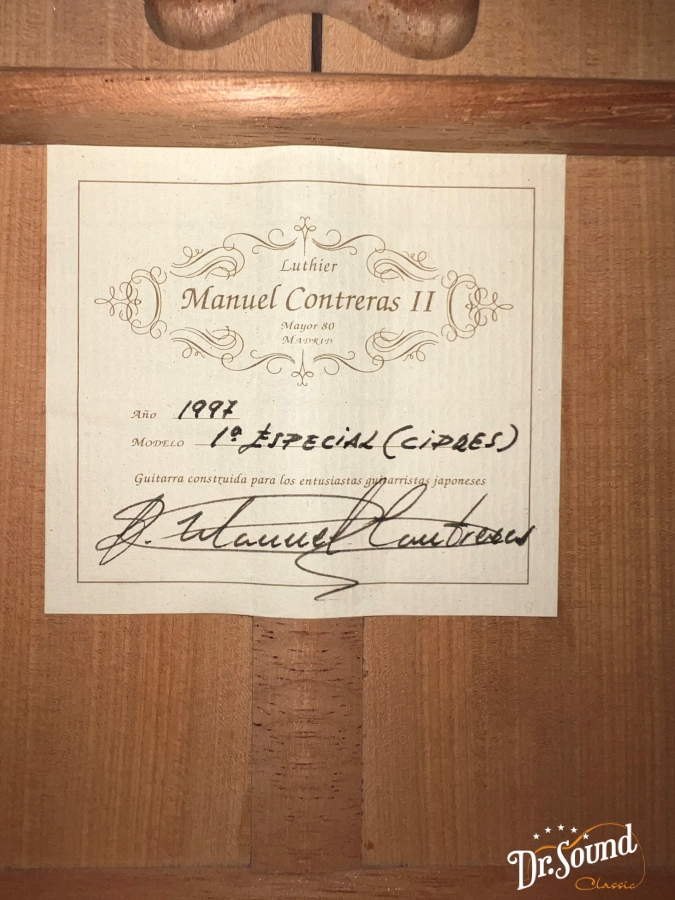 Luthier
Manuel Contreras II
Mayor 80
MADRID
Año 1997
MODELO 1ª ESPECIAL (CIPRES)
Guitarra construida para los entusiastas guitarristas japoneses
Manuel Contreras
Dr.Sound
Classic